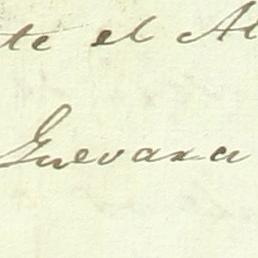 te el Al
Guevara